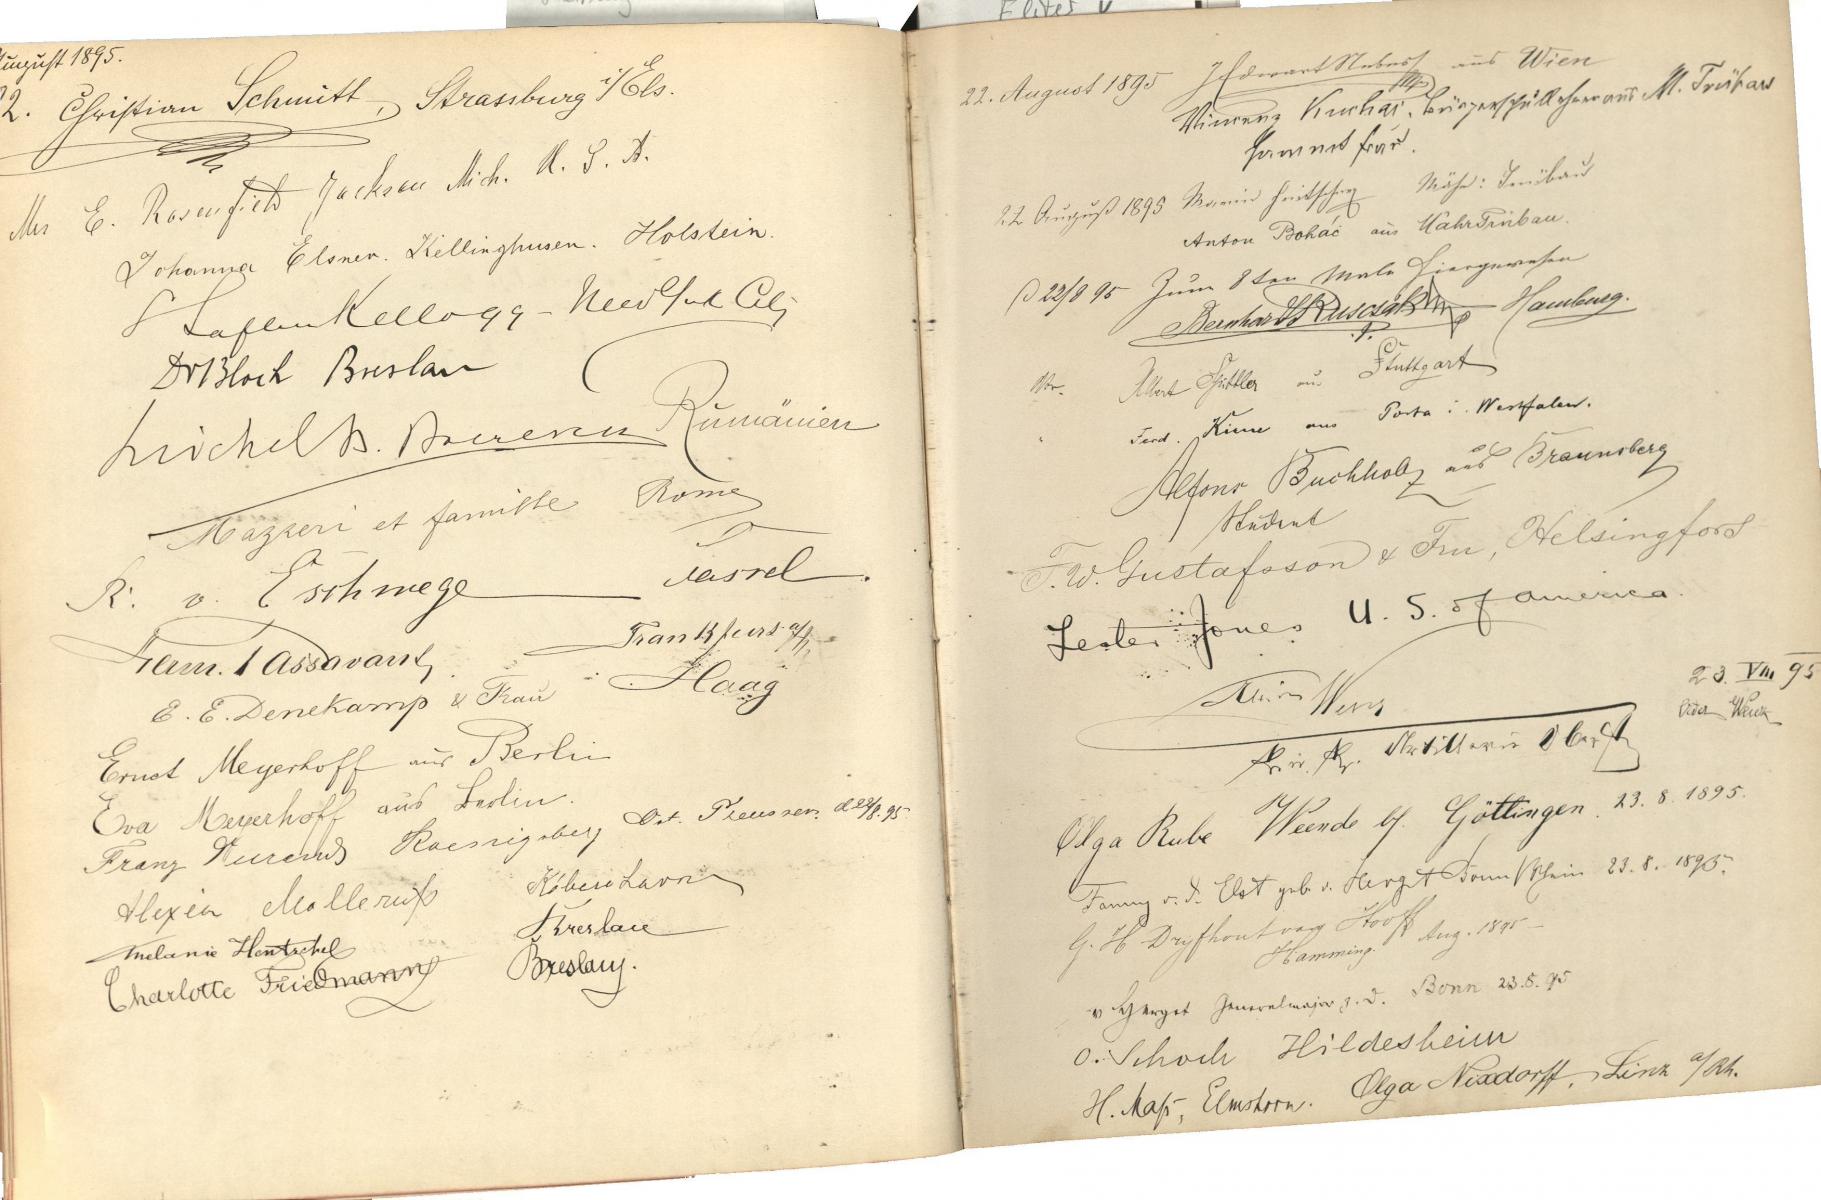 August 1895.
22. Christian Schmitt, Strassburg i/Els.
Mrs E. Rosenfield Jackson Mich. U. S. A.
Johanna Elsner. Kellinghusen. Holstein.
Laflin Kellogg - New York City
Dr Bloch Breslau
Rumänien
Mazzeri et famille Rome
K. v. Eschwege Cassel.
Fam. Passavant, Frankfurt a/M
E. E. Denekamp & Frau Haag
Ernst Meyerhoff aus Berlin
Eva Meyerhoff aus Berlin.
Franz Koenigsberg Ost. Preussen. d 22/8. 95.
Alexia Mollerup Köbenhavn
Melanie Hentschel Breslau
Charlotte Friedmann Breslau.
22. August 1895 aus Wien
Vincenz Kuchař, Bürgerschullehrer aus M. Trübau
sammt Frau.
22 August 1895 Mähr: Trübau
Anton Boháč aus Mähr Trübau.
D 22/8 95 Zum 8ten Male hiergewesen
Bernhard Hamburg.
Albert aus Stuttgart
Ferd. Kime aus Porta i. Westfalen.
Alfons Buchholz aus Braunsberg
Student
F. W. Gustafsson & Fru, Helsingfors
Lester Jones U. S. of America.
Wenz
23. VIII. 95
Artillerie Oberst
Olga Rube Weende b/. Göttingen. 23. 8. 1895.
Fanny v. d. Elst geb. v. Herget Bonn/Rhein 23. 8. 1895.
G. H. Dryfhout van Hooff Aug. 1895 -
v Herget Generalmajor z. D. Bonn 23. 8. 95
O. Schoch Hildesheim
H. Maß, Elmshorn. Olga Nixdorff, Linz a/Rh.